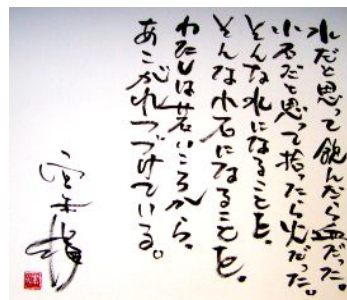 水だと思って飲んだら血だった。
小石だと思って拾ったら火だった。
そんな水になることを。
そんな小石になることを。
わたしは若いころから。
あこがれつづけている。